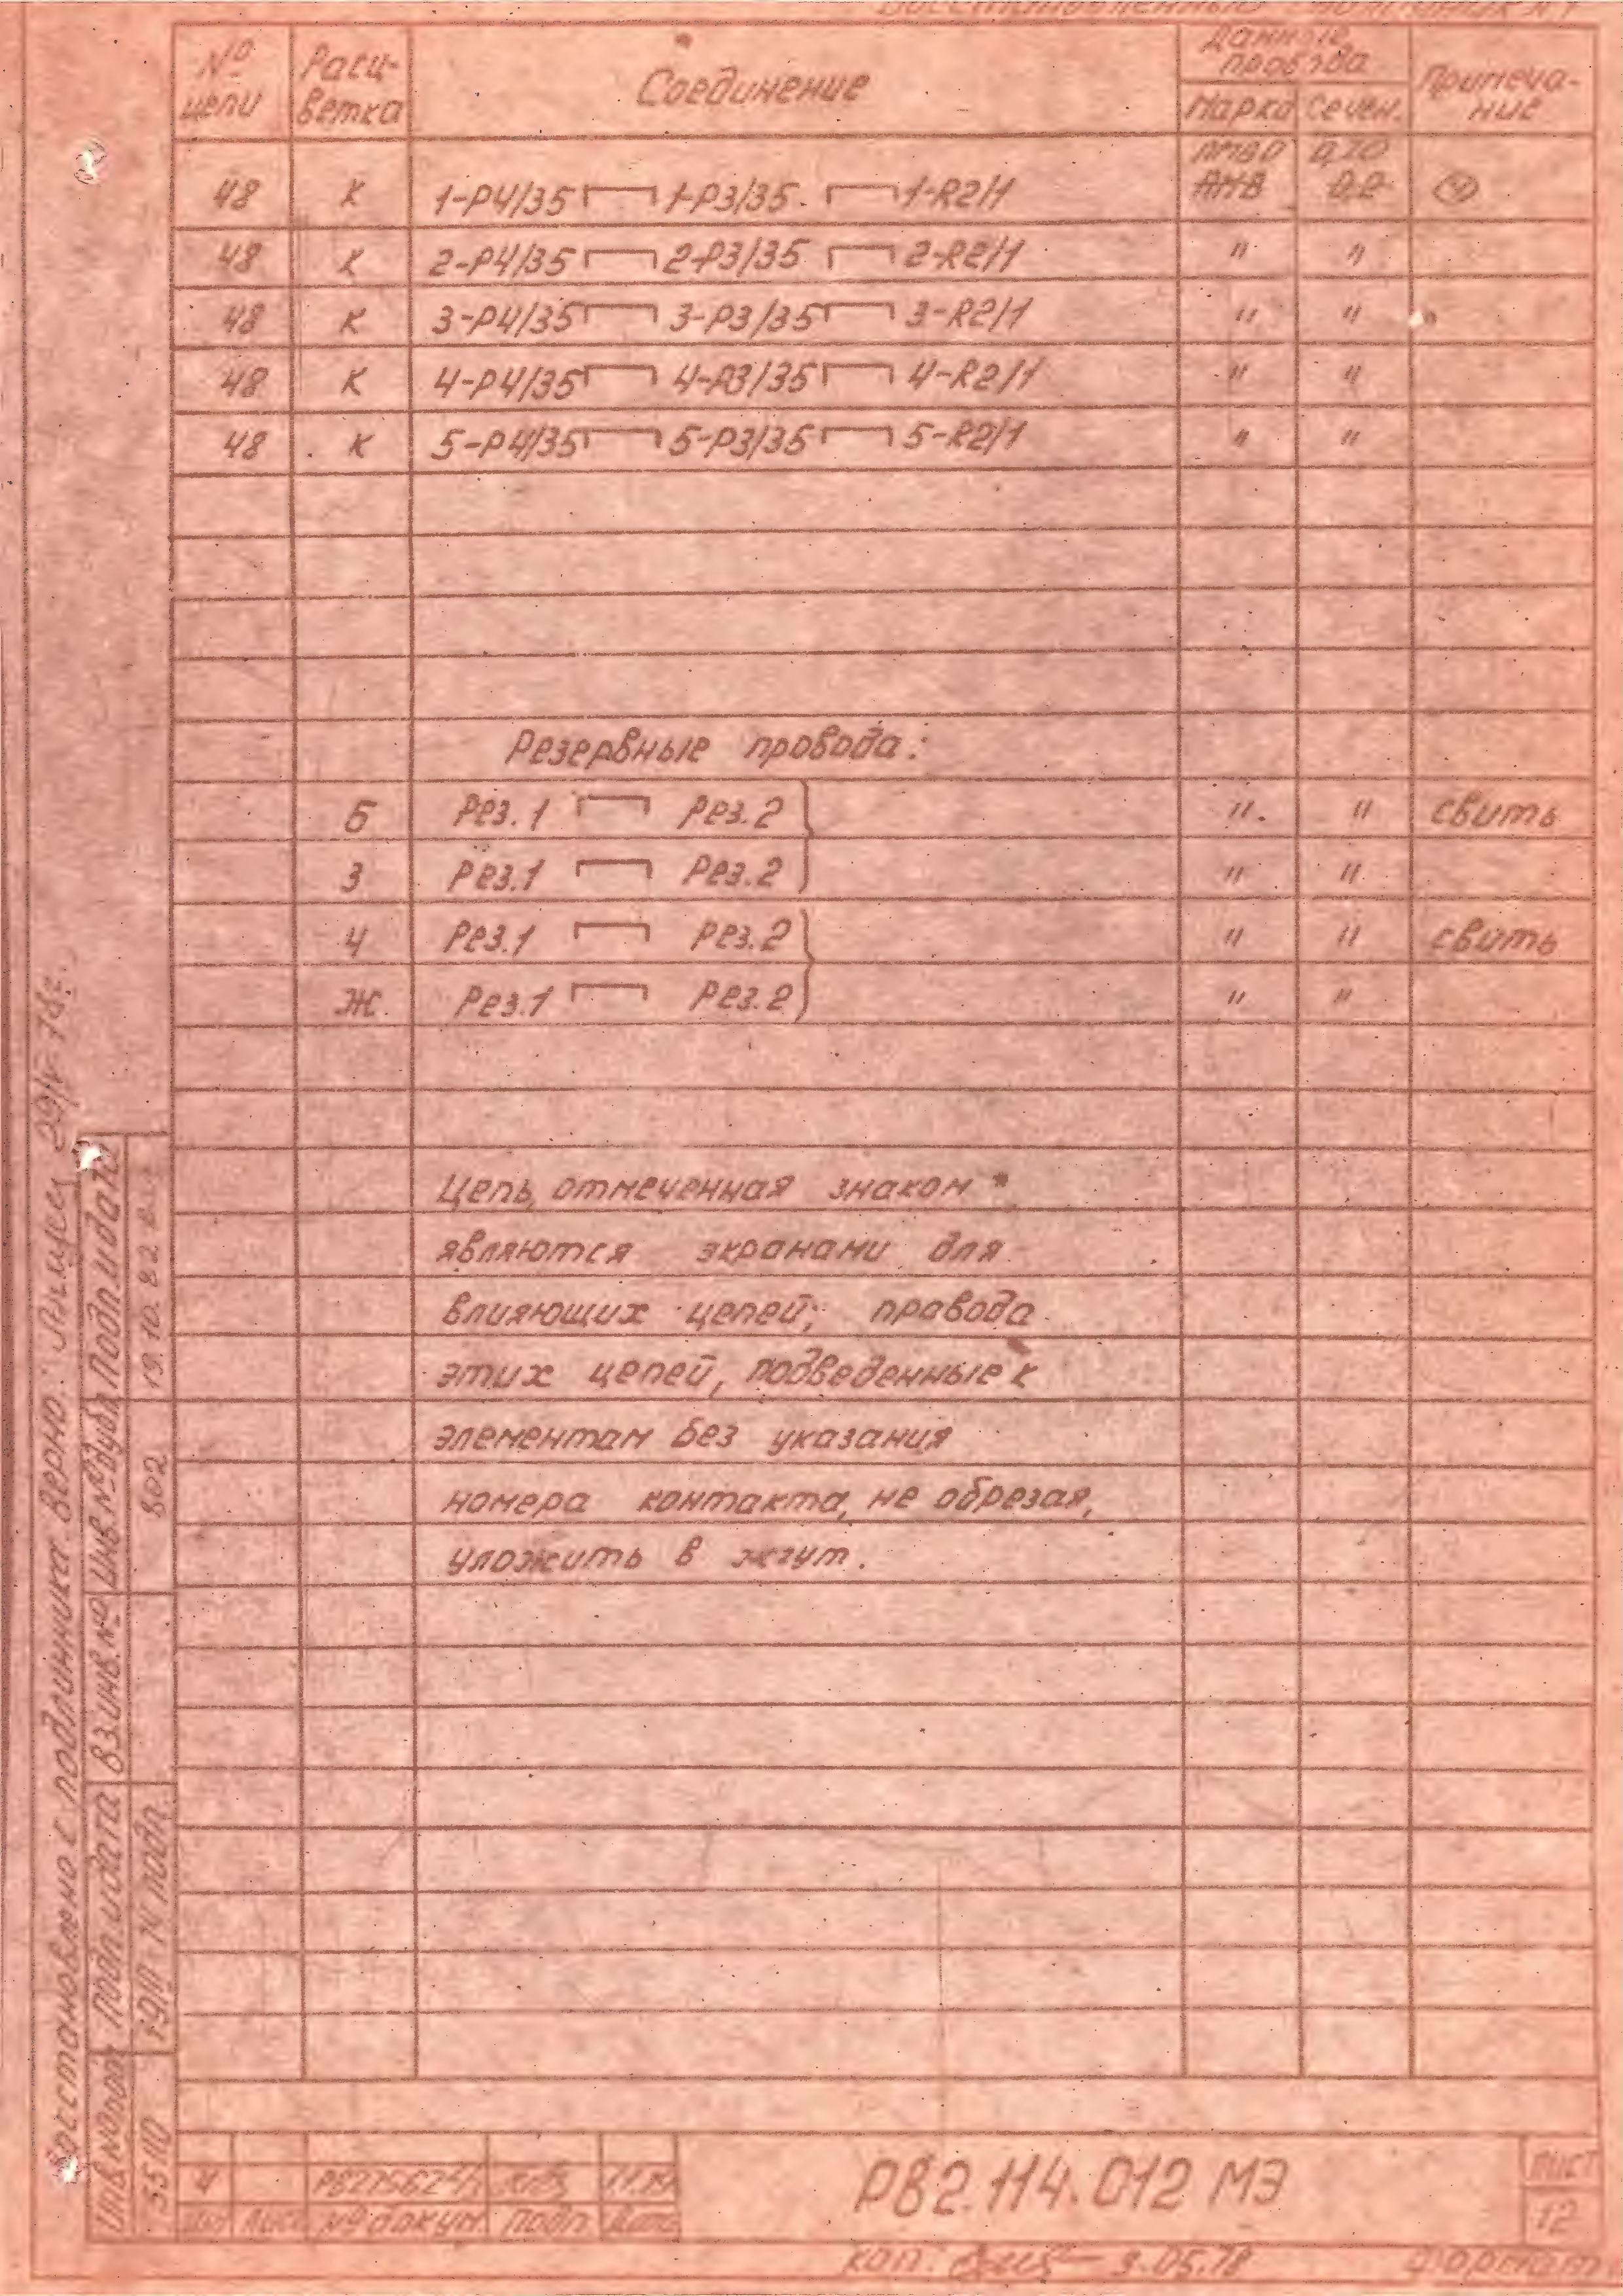 Восстановленный подлинник №1
№ цепи Расц-ветка Соединение Данные провода Примеча-ние
Марка Сечен.
ПМВО 0,20
48 К 1-Р4/35 ┌─┐ 1-Р3/35 ┌─┐ 1-R2/1 АМВ 0,2 (4)
48 К 2-Р4/35 ┌─┐ 2-Р3/35 ┌─┐ 2-R2/1 " "
48 К 3-Р4/35 ┌─┐ 3-Р3/35 ┌─┐ 3-R2/1 " "
48 К 4-Р4/35 ┌─┐ 4-Р3/35 ┌─┐ 4-R2/1 " "
48 К 5-Р4/35 ┌─┐ 5-Р3/35 ┌─┐ 5-R2/1 " "
Резервные провода:
Б Рез.1 ┌─┐ Рез.2 " " свить
З Рез.1 ┌─┐ Рез.2 " "
Ч Рез.1 ┌─┐ Рез.2 " " свить
Ж Рез.1 ┌─┐ Рез.2 " "
Цепь, отмеченная знаком *
являются экранами для
влияющих цепей; провода
этих цепей, подведенные к
элементам без указания
номера контакта, не обрезая,
уложить в жгут.
Восстановлено с подлинника. Верно:
Инв.№подл Подп. и дата Вз.инв.№ Инв.№дубл Подп. и дата
35ПО 802 19.10.82
4
Изм Лист № докум Подп Дата
РВ2.114.012 МЭ
Лист
12
Коп. 3.05.78 Формат